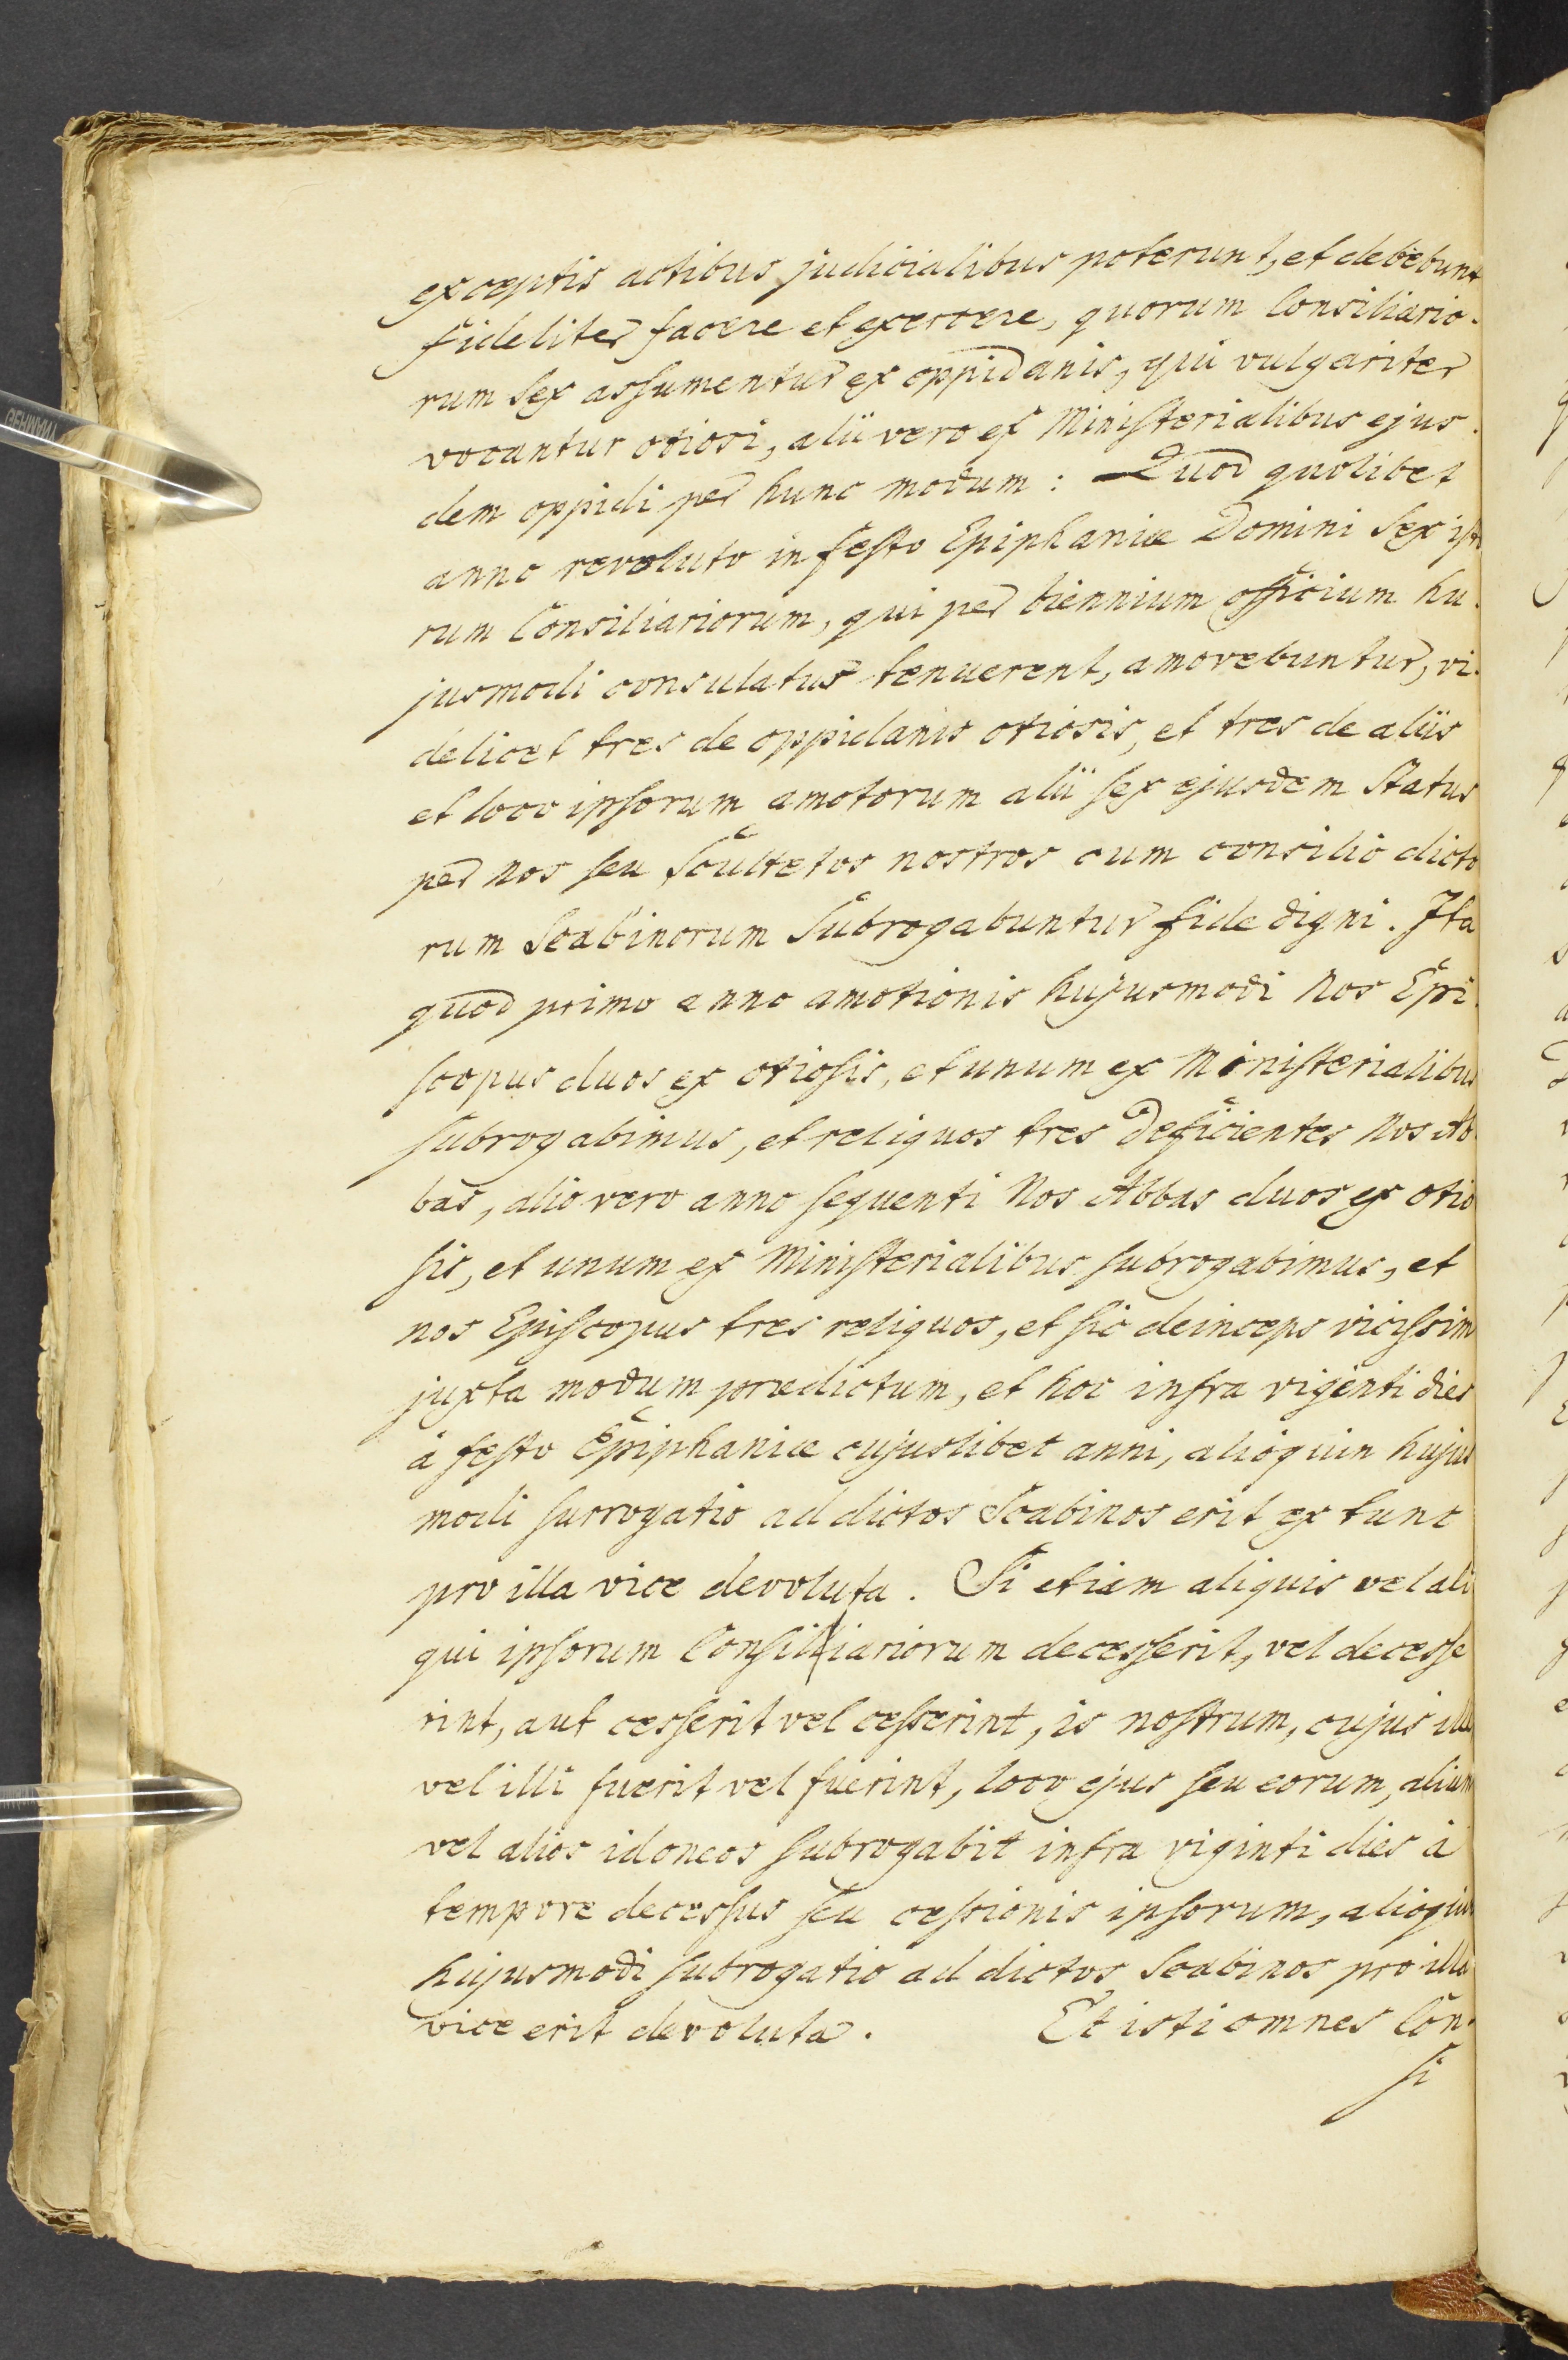 exceptis actibus judicialibus poterunt, et debebunt
fideliter facere et exercere, quorum Consiliario-
rum sex assumentur ex oppidanis, qui vulgariter
vocantur otiosi, alii vero ex Ministerialibus ejus-
dem oppidi per hunc modum: Quod quolibet
anno revoluto in festo Epiphaniæ Domini sex isto
rum Consiliariorum, qui per biennium officium hu-
jusmodi consulatus tenuerent, amovebuntur, vi-
delicet tres de oppidanis otiosis, et tres de aliis
et loco ipsorum amotorum alii sex ejusdem status
per nos seu Scultetos nostros cum consilio dicto
rum Scabinorum subrogabuntur fide digni. Ita
quod primo anno amotionis hujusmodi Nos Epi-
scopus duos ex otiosis, et unum ex Ministerialibus
subrogabimus, et reliquos tres deficientes Nos Ab-
bas, alio vero anno sequenti Nos Abbas duos ex otio
sis, et unum ex Ministerialibus subrogabimus, et
nos Episcopus tres reliquos, et sic deinceps vicissim
juxta modum prædictum, et hoc infra vigenti dies
à festo Epiphaniæ cujuslibet anni, alioquin hujus
modi surrogatio ad dictos Scabinos erit ex tunc
pro illa vice devoluta. Si etiam aliquis vel ali
qui ipsorum Consilliariorum decesserit, vel decesse
rint, aut cesserit vel cesserint, is nostrum, cujus ille
vel illi fuerit vel fuerint, loco ejus seu eorum, alium
vel alios idoneos subrogabit infra viginti dies à
tempore decessus seu cessionis ipsorum, alioquin
hujusmodi subrogatio ad dictos Scabinos pro illa
vice erit devoluta. Et isti omnes Con-
si